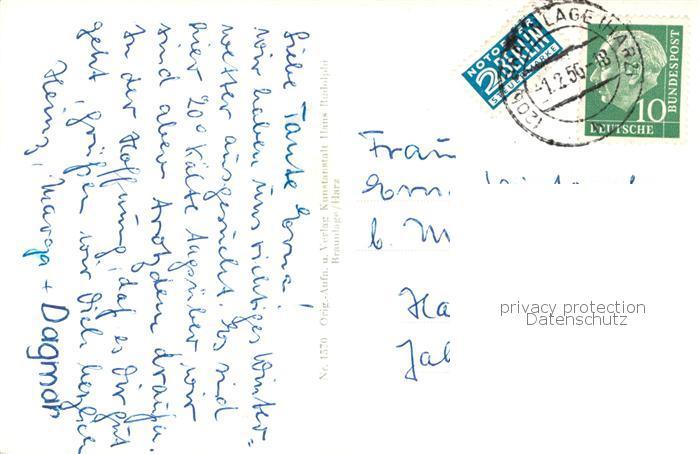 Liebe Tante Erna!
Wir haben uns richtiges Winter=
wetter ausgesucht. Es sind
hier 20° Kälte tagsüber, wir
sind aber trotzdem draußen.
In der Hoffnung, daß es Dir gut
geht, grüßen wir Dich herzlich
Heinz, + Dagmar
Nr. 1570 Orig.-Aufn. u. Verlag Kunstanstalt Hans Rudolphi
Braunlage/Harz
NOTOPFER
2 BERLIN
STEUERMARKE
(20b) BRAUNLAGE (HARZ)
-1.2.56-18
10
DEUTSCHE
BUNDESPOST
Frau
b. M
Ha
privacy protection
Datenschutz